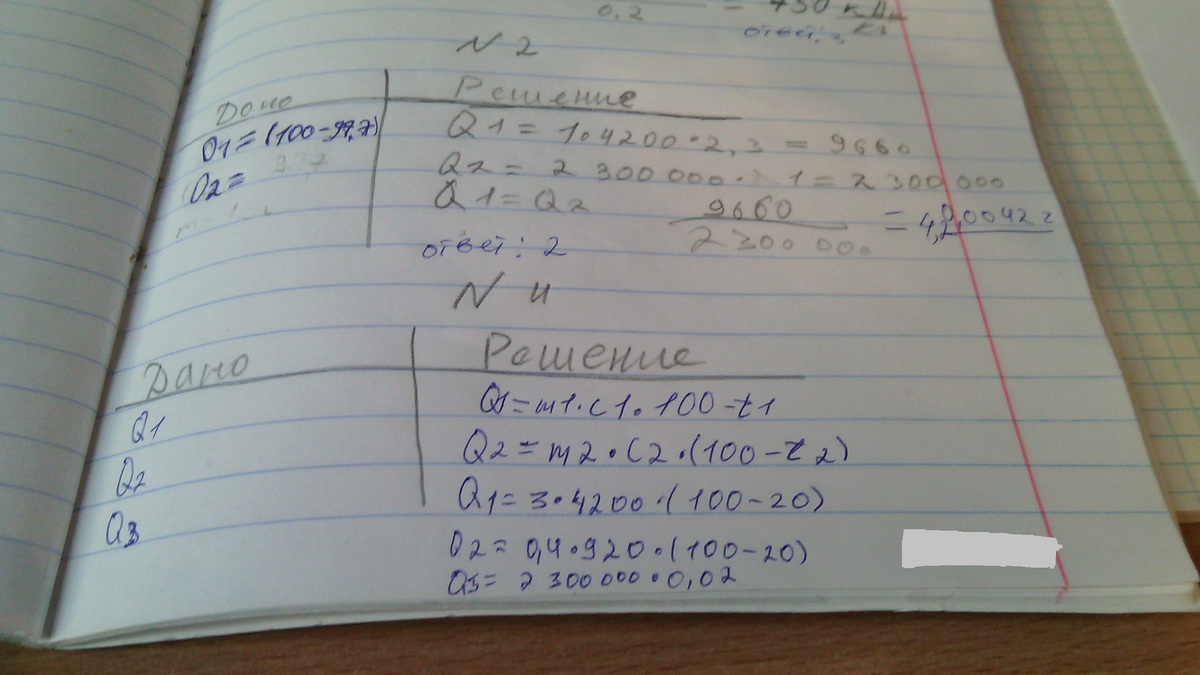 0,2 = 730 кДж/кг
ответ:
N 2
Дано
Решение
Q1=(100-97,7)
Q2=
97,7
Q1 = 1•4200•2,3 = 9660
Q2 = 2 300 000 • 1 = 2 300 000
Q1=Q2
9660
2 300 000
= 4,2 0,0042 г
ответ: 2
N 4
Дано
Решение
Q1
Q2
Q3
Q1=m1•c1•100-t1
Q2=m2•C2•(100-t2)
Q1=3•4200•(100-20)
Q2= 0,4•920•(100-20)
Q3= 2 300 000•0,02